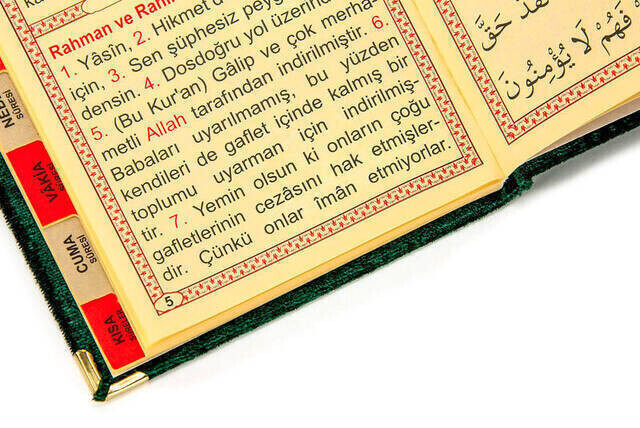 Rahman ve Rahî
1. Yâsîn, 2. Hikmet d
için, 3. Sen şüphesiz peyg
densin. 4. Dosdoğru yol üzerind
5. (Bu Kur'an) Gâlip ve çok merha-
metli Allah tarafından indirilmiştir. 6.
Babaları uyarılmamış, bu yüzden
kendileri de gaflet içinde kalmış bir
toplumu uyarman için indirilmiş-
tir. 7. Yemin olsun ki onların çoğu
gafletlerinin cezâsını hak etmişler-
dir. Çünkü onlar îmân etmiyorlar.
5
حَقَّ
فَهُمْ لَا يُؤْمِنُونَ
NEB
SURESİ
VÂKIA
SURESİ
CUMA
SURESİ
KISA
SURELER